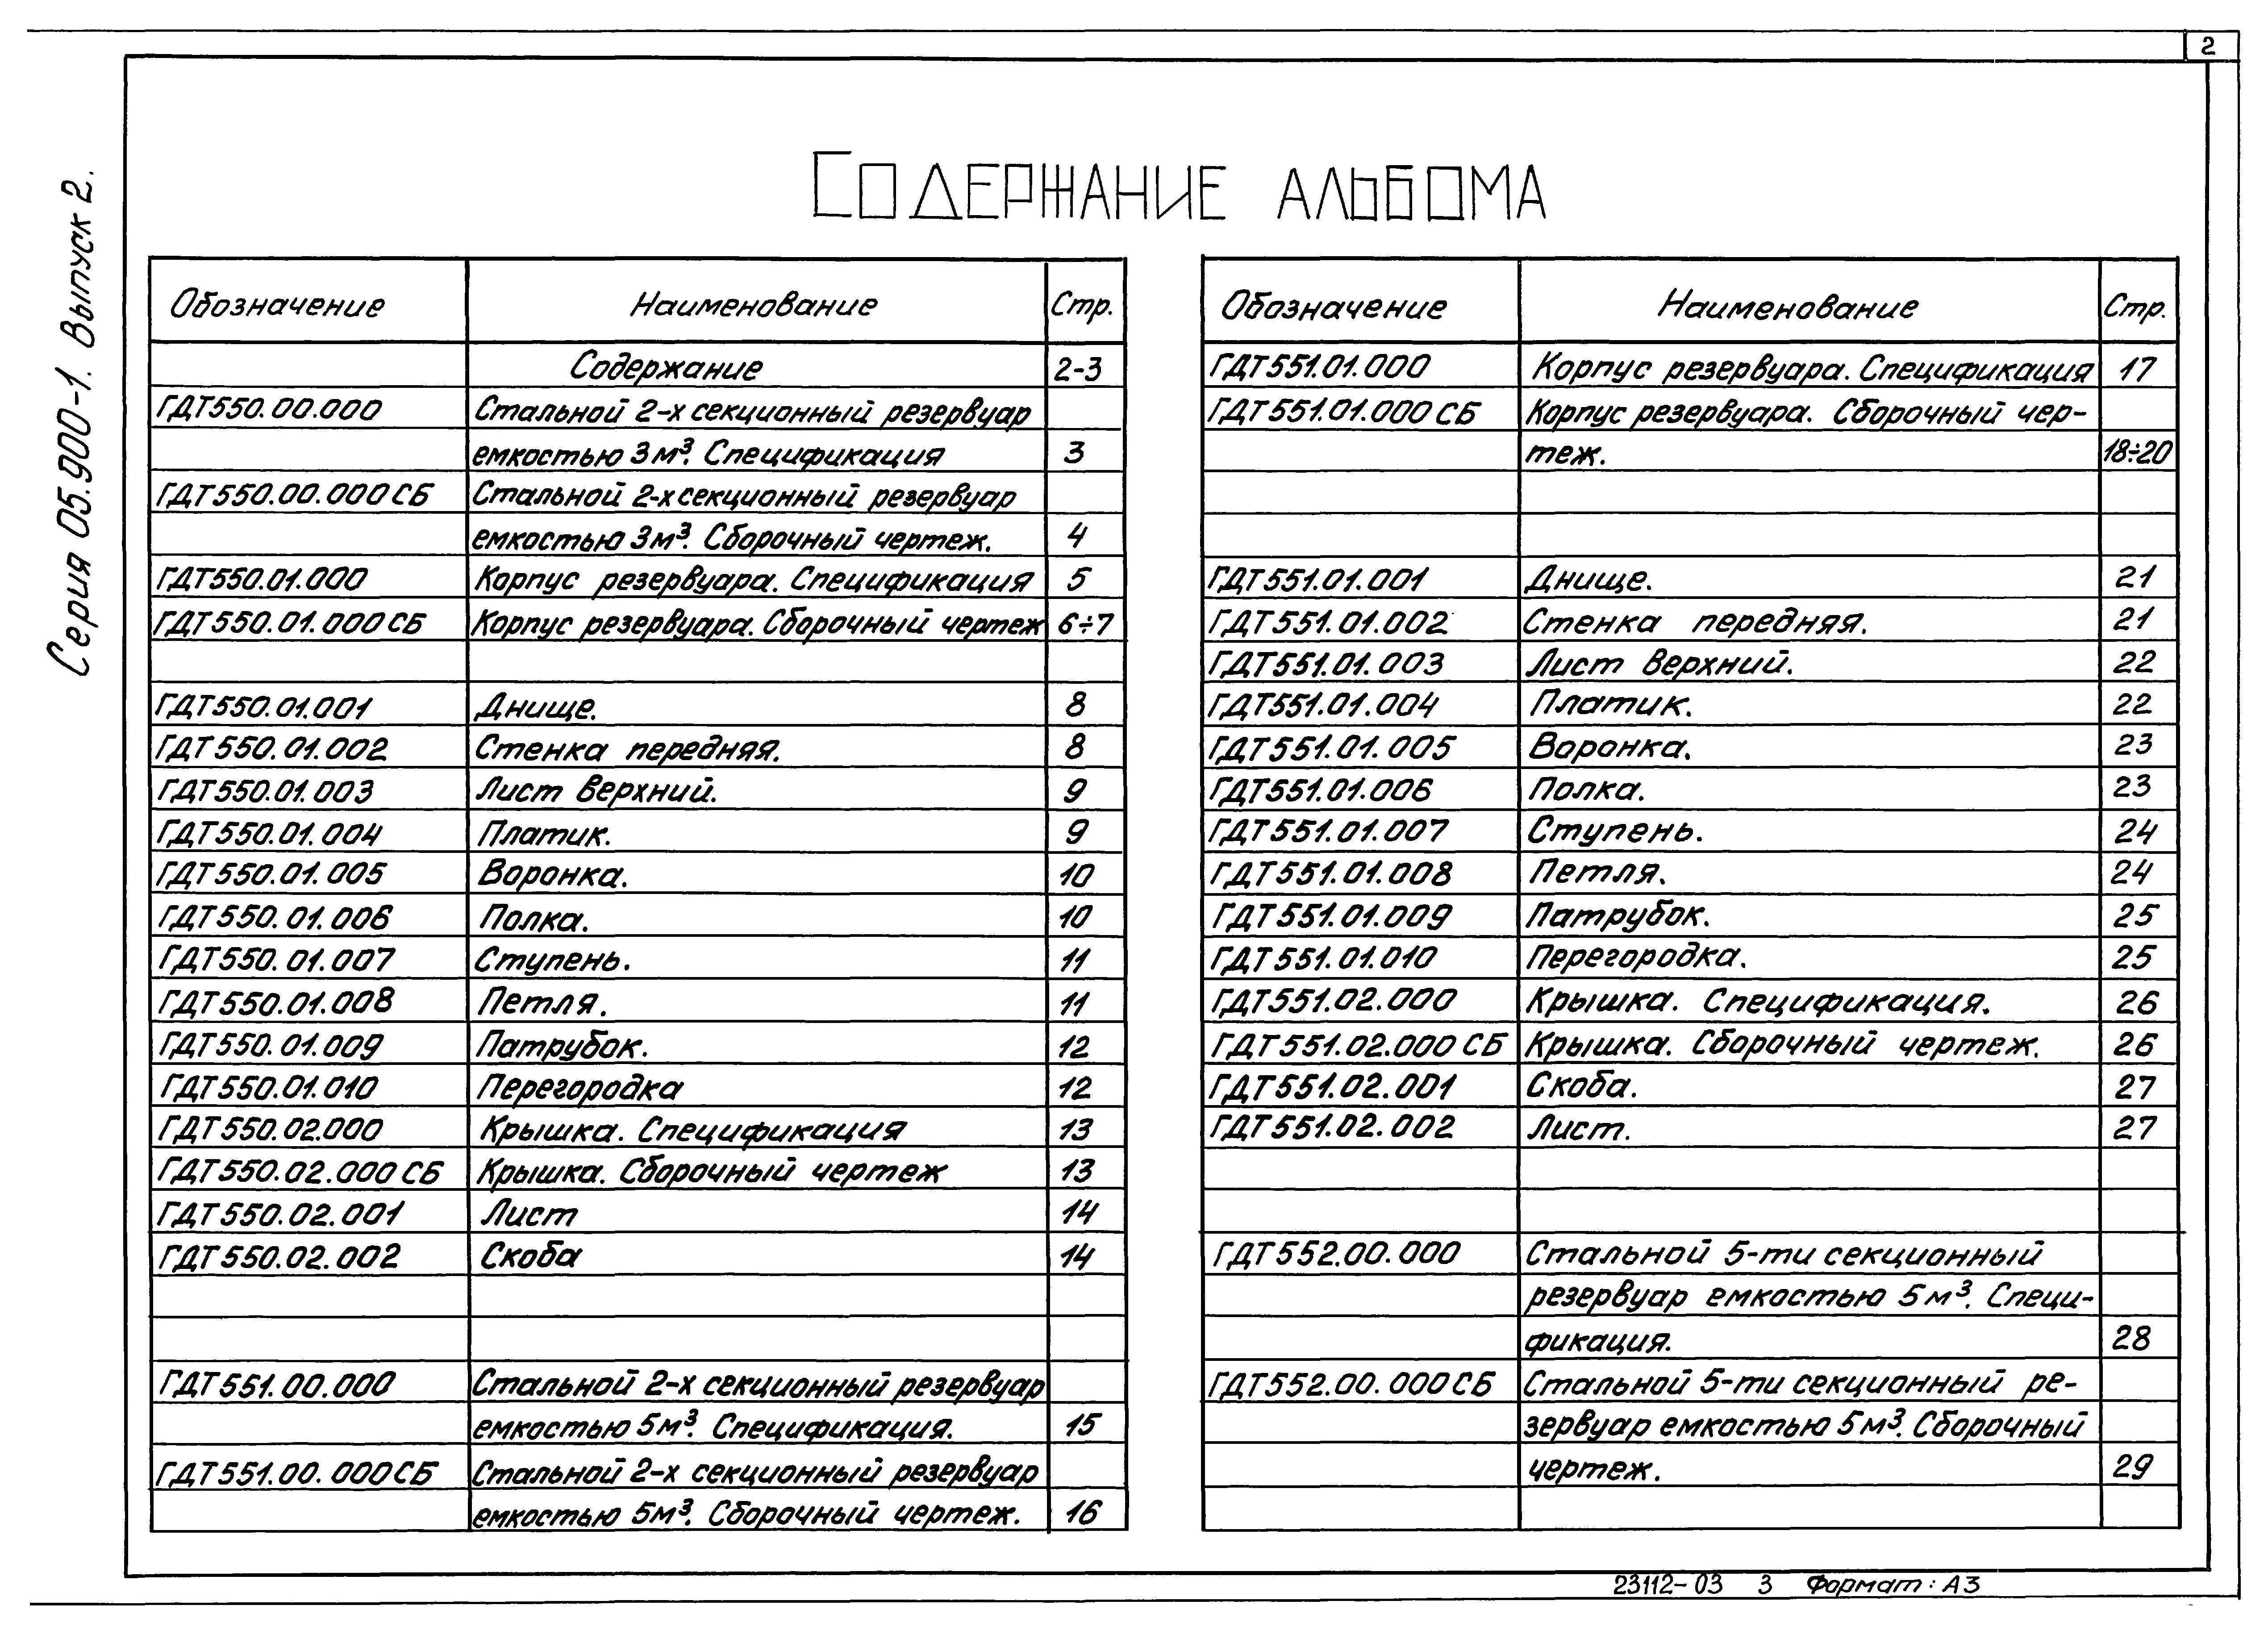 2
Серия 05.900-1. Выпуск 2.
Содержание альбома
Обозначение Наименование Стр.
Содержание 2-3
ГДТ550.00.000 Стальной 2-х секционный резервуар
емкостью 3м³. Спецификация 3
ГДТ550.00.000СБ Стальной 2-х секционный резервуар
емкостью 3м³. Сборочный чертеж. 4
ГДТ550.01.000 Корпус резервуара. Спецификация 5
ГДТ550.01.000СБ Корпус резервуара. Сборочный чертеж 6÷7
ГДТ550.01.001 Днище. 8
ГДТ550.01.002 Стенка передняя. 8
ГДТ550.01.003 Лист верхний. 9
ГДТ550.01.004 Платик. 9
ГДТ550.01.005 Воронка. 10
ГДТ550.01.006 Полка. 10
ГДТ550.01.007 Ступень. 11
ГДТ550.01.008 Петля. 11
ГДТ550.01.009 Патрубок. 12
ГДТ550.01.010 Перегородка 12
ГДТ550.02.000 Крышка. Спецификация 13
ГДТ550.02.000СБ Крышка. Сборочный чертеж 13
ГДТ550.02.001 Лист 14
ГДТ550.02.002 Скоба 14
ГДТ551.00.000 Стальной 2-х секционный резервуар
емкостью 5м³. Спецификация. 15
ГДТ551.00.000СБ Стальной 2-х секционный резервуар
емкостью 5м³. Сборочный чертеж. 16
Обозначение Наименование Стр.
ГДТ551.01.000 Корпус резервуара. Спецификация 17
ГДТ551.01.000СБ Корпус резервуара. Сборочный чер-
теж. 18÷20
ГДТ551.01.001 Днище. 21
ГДТ551.01.002 Стенка передняя. 21
ГДТ551.01.003 Лист верхний. 22
ГДТ551.01.004 Платик. 22
ГДТ551.01.005 Воронка. 23
ГДТ551.01.006 Полка. 23
ГДТ551.01.007 Ступень. 24
ГДТ551.01.008 Петля. 24
ГДТ551.01.009 Патрубок. 25
ГДТ551.01.010 Перегородка. 25
ГДТ551.02.000 Крышка. Спецификация. 26
ГДТ551.02.000СБ Крышка. Сборочный чертеж. 26
ГДТ551.02.001 Скоба. 27
ГДТ551.02.002 Лист. 27
ГДТ552.00.000 Стальной 5-ти секционный
резервуар емкостью 5м³. Специ-
фикация. 28
ГДТ552.00.000СБ Стальной 5-ти секционный ре-
зервуар емкостью 5м³. Сборочный
чертеж. 29
23112-03 3 Формат: А3